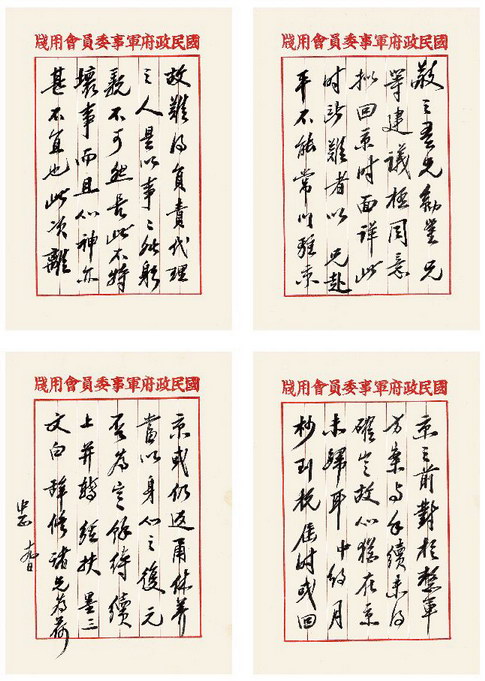 國民政府軍事委員會用牋
敬之吾兄勛鑒兄
等建議極同意
拟回京时面詳此
时所難者以 兄赴
平不能常川駐京
國民政府軍事委員會用牋
故難得負責代理
之人是以事々非躬
親不可然長此不特
壞事而且心神亦
甚不宜也此次離
國民政府軍事委員會用牋
京之前對於整軍
方案与手續未得
確定故心猶在京
未歸耳 中約月
杪到杭屆时或回
國民政府軍事委員會用牋
京或仍返甬休养
當以身心之復元
否為定餘待續
上并轉經扶 墨三
文白 辞修諸兄為荷
中正 十九日